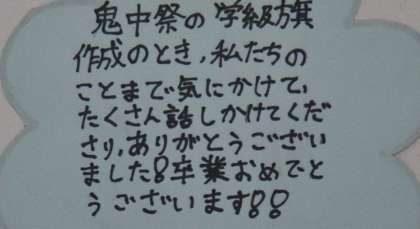 鬼中祭の学級旗
作成のとき、私たちの
ことまで気にかけて、
たくさん話しかけてくだ
さり、ありがとうござい
ました!卒業おめでと
うございます!!